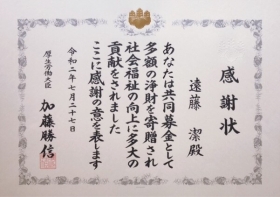 感謝状
遠藤 潔殿
あなたは共同募金として
多額の浄財を寄贈され
社会福祉の向上に多大の
貢献をされました
ここに感謝の意を表します
令和二年七月二十七日
厚生労働大臣 加藤勝信